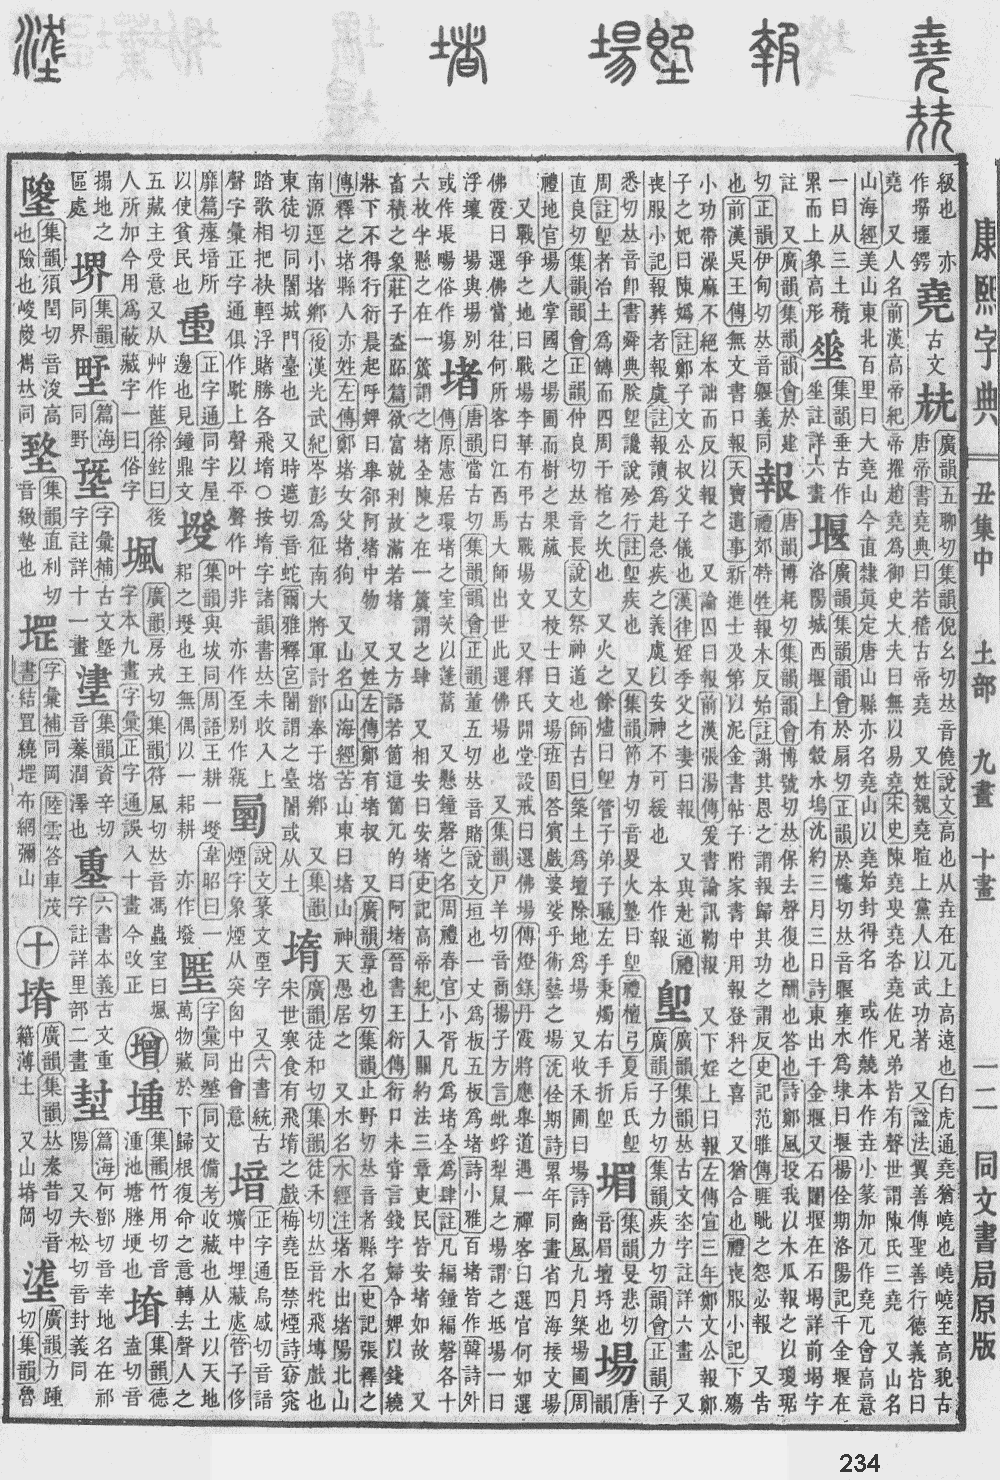 康熙字典 丑集中 土部 九畫 十畫 一二 同文書局原版
堯 𡊗 報 堲 場 堵
級也 亦 堯 古文 𡊗 廣韻五聊切集韻倪幺切𠀤音僥說文高也从垚在兀上高遠也白虎通堯猶嶢也嶢嶢至高貌古
唐帝書堯典曰若稽古帝堯 又姓魏堯暄上黨人以武功著 又諡法翼善傳聖善行德義皆曰
堯 又人名前漢高帝紀帝擢趙堯爲御史大夫曰無以易堯宋史陳堯叟堯咨堯佐兄弟皆有聲世謂陳氏三堯 又山名
山海經美山東北百里曰大堯山今直隸眞定唐山縣亦名堯山以堯始封得名 本作垚小篆加兀作堯兀會高意
一曰从三土積 集韻垂古作 堰 廣韻集韻韻會於扇切正韻切𠀤音匽壅水爲埭曰堰楊佺期洛陽記千金堰在
累而上象高形 坐註詳六畫 洛陽城西堰上有穀水塢沈約三月三日詩東出千金堰又石闥堰在石堨詳前堨字
註 又廣韻集韻韻會於建 報 唐韻博耗切集韻韻會博號切𠀤保去聲復也酬也答也詩鄭風投我以木瓜報之以瓊琚
切正韻伊甸切𠀤音躽義同 禮郊特牲報本反始註謝其恩之謂報歸其功之謂反史記范雎傳睚眦之怨必報 又告
也前漢吳王傳無文書口報天寶遺事新進士及第以泥金書帖子附家書中用報登科之喜 又猶合也禮喪服小記下殤
小功帶澡麻不絕本詘而反以報之 又論囚曰報前漢張湯傳爰書論訊鞫報 又下婬上曰報左傳宣三年鄭文公報鄭
子之妃曰陳嬀註鄭子文公叔父子儀也漢律婬季父之妻曰報 又與赴通禮 堲 廣韻集韻𠀤古文字註詳六畫 又
喪服小記報葬者報虞註報讀爲赴急疾之義虞以安神不可緩也 本作報 廣韻子力切集韻疾力切韻會正韻子
悉切𠀤音卽書舜典朕堲讒說殄行註堲疾也 又集韻節力切音稷火熟曰堲禮檀弓夏后氏堲 堳 集韻旻悲切 場 唐
周註堲者冶土爲甎而四周于棺之坎也 又火之餘燼曰堲管子弟子職左手秉燭右手折堲 音眉壇埓也 韻
直良切集韻韻會正韻仲良切𠀤音長說文祭神道也師古曰築土爲壇除地爲場 又收禾圃曰場詩豳風九月築場圃周
禮地官場人掌國之場圃而樹之果蓏 又校士曰文場班固答賓戲婆娑乎術藝之場沈佺期詩累年同畫省四海接文場
又戰爭之地曰戰場李華有弔古戰場文 又釋氏開堂設戒曰選佛場傳燈錄丹霞將應舉遇一禪客曰選官何如選
佛霞曰選佛當往何所客曰江西馬大師出世此選佛場也 又集韻尸羊切音商揚子方言蚍蜉犁鼠之場謂之坻場一曰
浮壤 場與塲別 堵 唐韻當古切集韻韻會正韻董五切𠀤音賭說文垣也一丈爲板五板爲堵詩小雅百堵皆作韓詩外
或作塲暘俗作塲 傳原憲居環堵之室茨以蓬蒿 又懸鐘磬之名周禮春官小胥凡爲堵全爲肆註凡編鐘編磬各十
六枚半懸之在一簴謂之堵全陳之在一簴謂之肆 又相安曰安堵史記高帝紀上入關約法三章吏民皆安堵如故 又
畜積之象莊子盜跖篇欲富就利故滿若堵 又方語若箇這箇兀的曰阿堵晉書王衍傳衍口未嘗言錢字婦令婢以錢繞
牀下不得行衍晨起呼婢曰舉郤阿堵中物 又姓左傳鄭有堵叔 又廣韻章也切集韻止野切𠀤音者縣名史記張釋之
傳釋之堵縣人亦姓左傳鄭堵女父堵狗 又山名山海經苦山東曰堵山神天愚居之 又水名水經注堵水出堵陽北山
南源逕小堵鄉後漢光武紀岑彭爲征南大將軍討鄧奉于堵鄉 又集韻 堶 廣韻徒和切集韻徒禾切𠀤音牠飛塼戲也
東徒切同闍城門臺也 又時遮切音蛇爾雅釋宮闍謂之臺闍或从土 宋世寒食有飛堶之戲梅堯臣禁煙詩窈窕
踏歌相把袂輕浮賭勝各飛堶○按堶字諸韻書𠀤未收入上 說文篆文垔字 又六書統古 堷 正字通烏感切音諳
聲字彙正字通俱作駝上聲以平聲作叶非 亦作至別作甄 煙字象煙从突囪中出會意 壙中埋藏處管子侈
靡篇瘞堷所 正字通同字屋 墢 集韻與坺同周語王耕一墢韋昭曰一 字彙同壄同文備考收藏也从土以天地
以使貧民也 邊也見鐘鼎文 耜之墢也王無偶以一耜耕 亦作墢 萬物藏於下歸根復命之意轉去聲人之
五藏主受意又从艸作蓲徐鉉曰後 堸 廣韻房戎切集韻符風切𠀤音馮蟲室曰堸 增 堹 集韻竹用切音 堉 集韻德
人所加今用爲蔽藏字一曰俗字 字本九畫字彙正字通誤入十畫今改正 湩池塘塍埂也 盍切音
搨地之 堺 集韻 墅 篇海 字彙補古文墍 集韻資辛切 六書本義古文重 封 篇海何鄧切音幸地名在祁
區處 同界 同野 字註詳十一畫 音蓁潤澤也 字註詳里部二畫 陽 又夫松切音封義同
集韻須閏切音浚高 集韻直利切 字彙補同岡陸雲答車茂 十 塉 廣韻集韻𠀤秦昔切音 廣韻力踵
也險也峻陖㑺𠀤同 音緻墊也 書結罝繞堽布網彌山 籍薄土 又山塉岡 切集韻魯
234